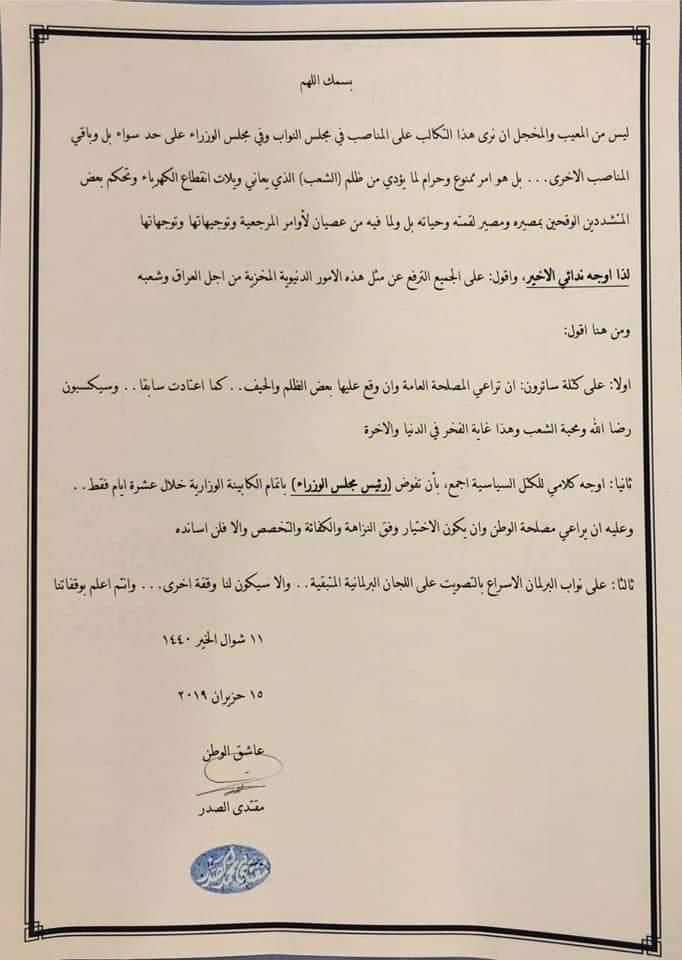 بسمك اللهم
ليس من المعيب والمخجل ان نرى هذا التكالب على المناصب في مجلس النواب وفي مجلس الوزراء على حد سواء بل وباقي
المناصب الاخرى... بل هو امر ممنوع وحرام لما يؤدي من ظلم (الشعب) الذي يعاني ويلات انقطاع الكهرباء وتحكم بعض
المتشددين الوقحين بمصيره ومصير لقمته وحياته بل ولما فيه من عصيان لأوامر المرجعية وتوجيهاتها وتوجهاتها
لذا اوجه ندائي الاخير، واقول: على الجميع الترفع عن مثل هذه الامور الدنيوية المخزية من اجل العراق وشعبه
ومن هنا اقول:
اولا: على كتلة سائرون: ان تراعي المصلحة العامة وان وقع عليها بعض الظلم والحيف.. كما اعتادت سابقا.. وسيكسبون
رضا الله ومحبة الشعب وهذا غاية الفخر في الدنيا والاخرة
ثانيا: اوجه كلامي للكتل السياسية اجمع، بأن تفوض (رئيس مجلس الوزراء) باتمام الكابينة الوزارية خلال عشرة ايام فقط..
وعليه ان يراعي مصلحة الوطن وان يكون الاختيار وفق النزاهة والكفائة والتخصص والا فلن اسانده
ثالثا: على نواب البرلمان الاسراع بالتصويت على اللجان البرلمانية المتبقية.. والا سيكون لنا وقفة اخرى... وانتم اعلم بوقفاتنا
١١ شوال الخير ١٤٤٠
١٥ حزيران ٢٠١٩
عاشق الوطن
مقتدى الصدر